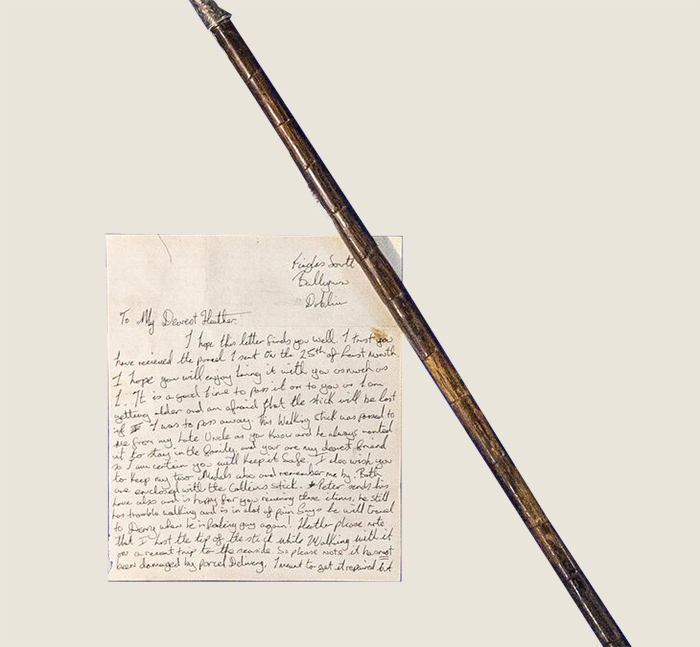 Finglas South
Ballymun
Dublin
To My Dearest Heather.
I hope this letter finds you well. I trust you
have recieved the parcel I sent on the 25th of last month
I hope you will enjoy having it with you as much as
I. It is a good time to pass it on to you as I am
getting older and am afraid that the stick will be lost
if I was to pass away. This Walking stick was passed to
me from my Late Uncle as you know and he always wanted
it to stay in the family and you are my dearest friend
so I am certain you will keep it safe. I also wish you
to keep my two Medals also and remember me by. Both
are enclosed with the Collins stick. Peter sends his
love also and is happy for you recieving these items, he still
has trouble walking and is in alot of pain. Says he will travel
to Derry when he is feeling good again! Heather please note
that I lost the tip of the stick while Walking with it
on a recent trip to the seaside So please note it has not
been damaged by parcel Delivery. I meant to get it repaired but